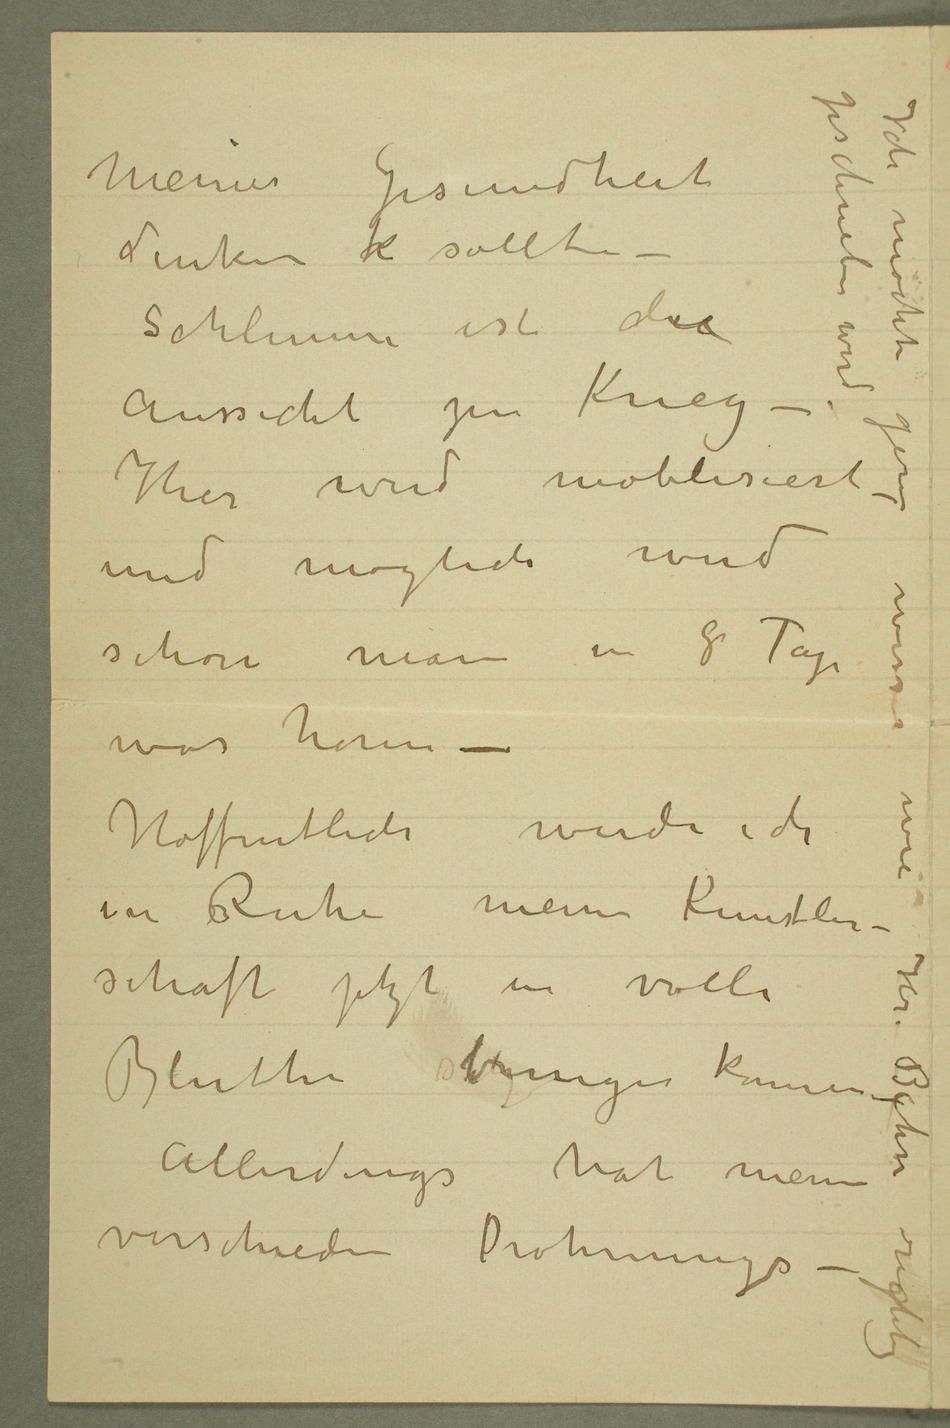 meines Gesundheit
denken sollte –
Schlimm ist die
Aussicht zu Krieg –
Hier wird moblisiert –
und moglich wird
schon man in 8 Tage
was horen –
Hoffentlich werde ich
in Ruhe meine Kunstler-
schaft jetzt in volle
Bluthe bringen konnen –
Allerdings hat meine
verschieden Drohnungs –
Ich mochte gern wissen wie Hr. Bahr richtig
geschrieben wird